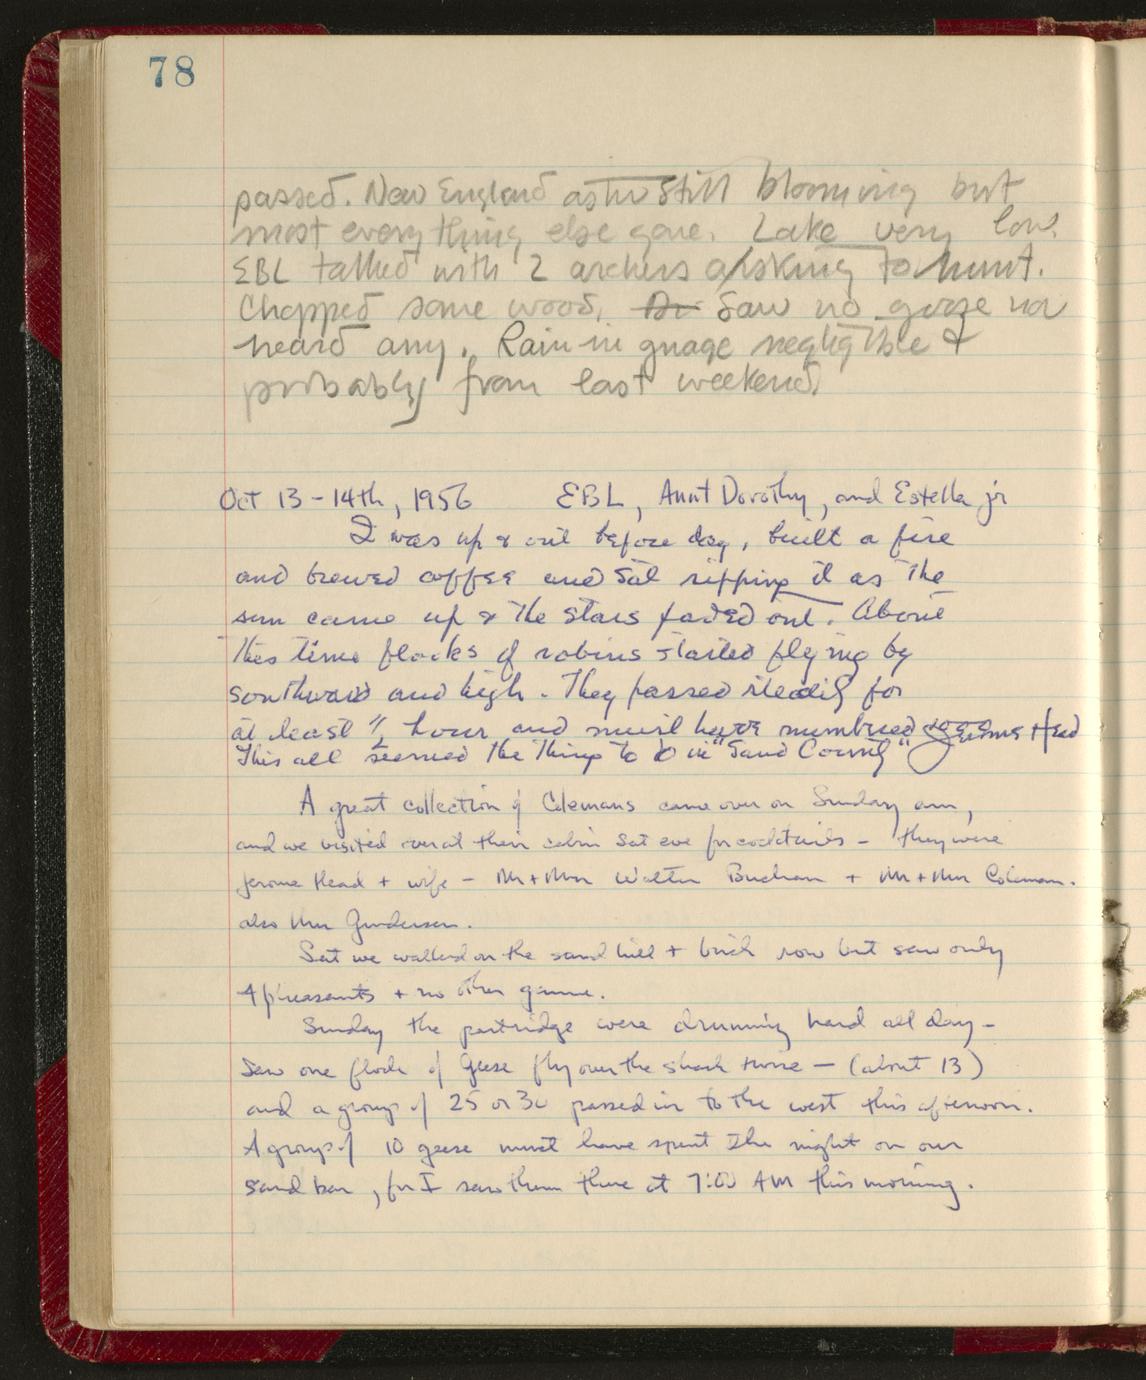 78
passed. New England aster still blooming but
most everything else gone. Lake very low.
EBL talked with 2 archers asking to hunt.
Chopped some wood. Saw no geese nor
heard any. Rain in guage negligible &
probably from last weekend.
Oct 13-14th, 1956 EBL, Aunt Dorothy, and Estella jr
I was up & out before day, built a fire
and brewed coffee and sat sipping it as the
sun came up & the stars faded out. About
this time flocks of robins started flying by
southward and high. They passed steadily for
at least hour and must have numbered
This all seemed the thing to do in "Sand County"
A great collection of Colemans came over on Sunday am,
and we visited over at their cabin Sat eve for cocktails - they were
Jerome Head + wife - Mr + Mrs Walter + Mr + Mrs Coleman.
also Mrs Gunderson.
Sat we walked on the sand hill + birch row but saw only
4 pheasants + no other game.
Sunday the partridge were drumming hard all day -
Saw one flock of Geese fly over the shack twice - (about 13)
and a group of 25 or 30 passed in to the west this afternoon.
A group of 10 geese must have spent the night on our
sand bar, for I saw them there at 7:00 AM this morning.